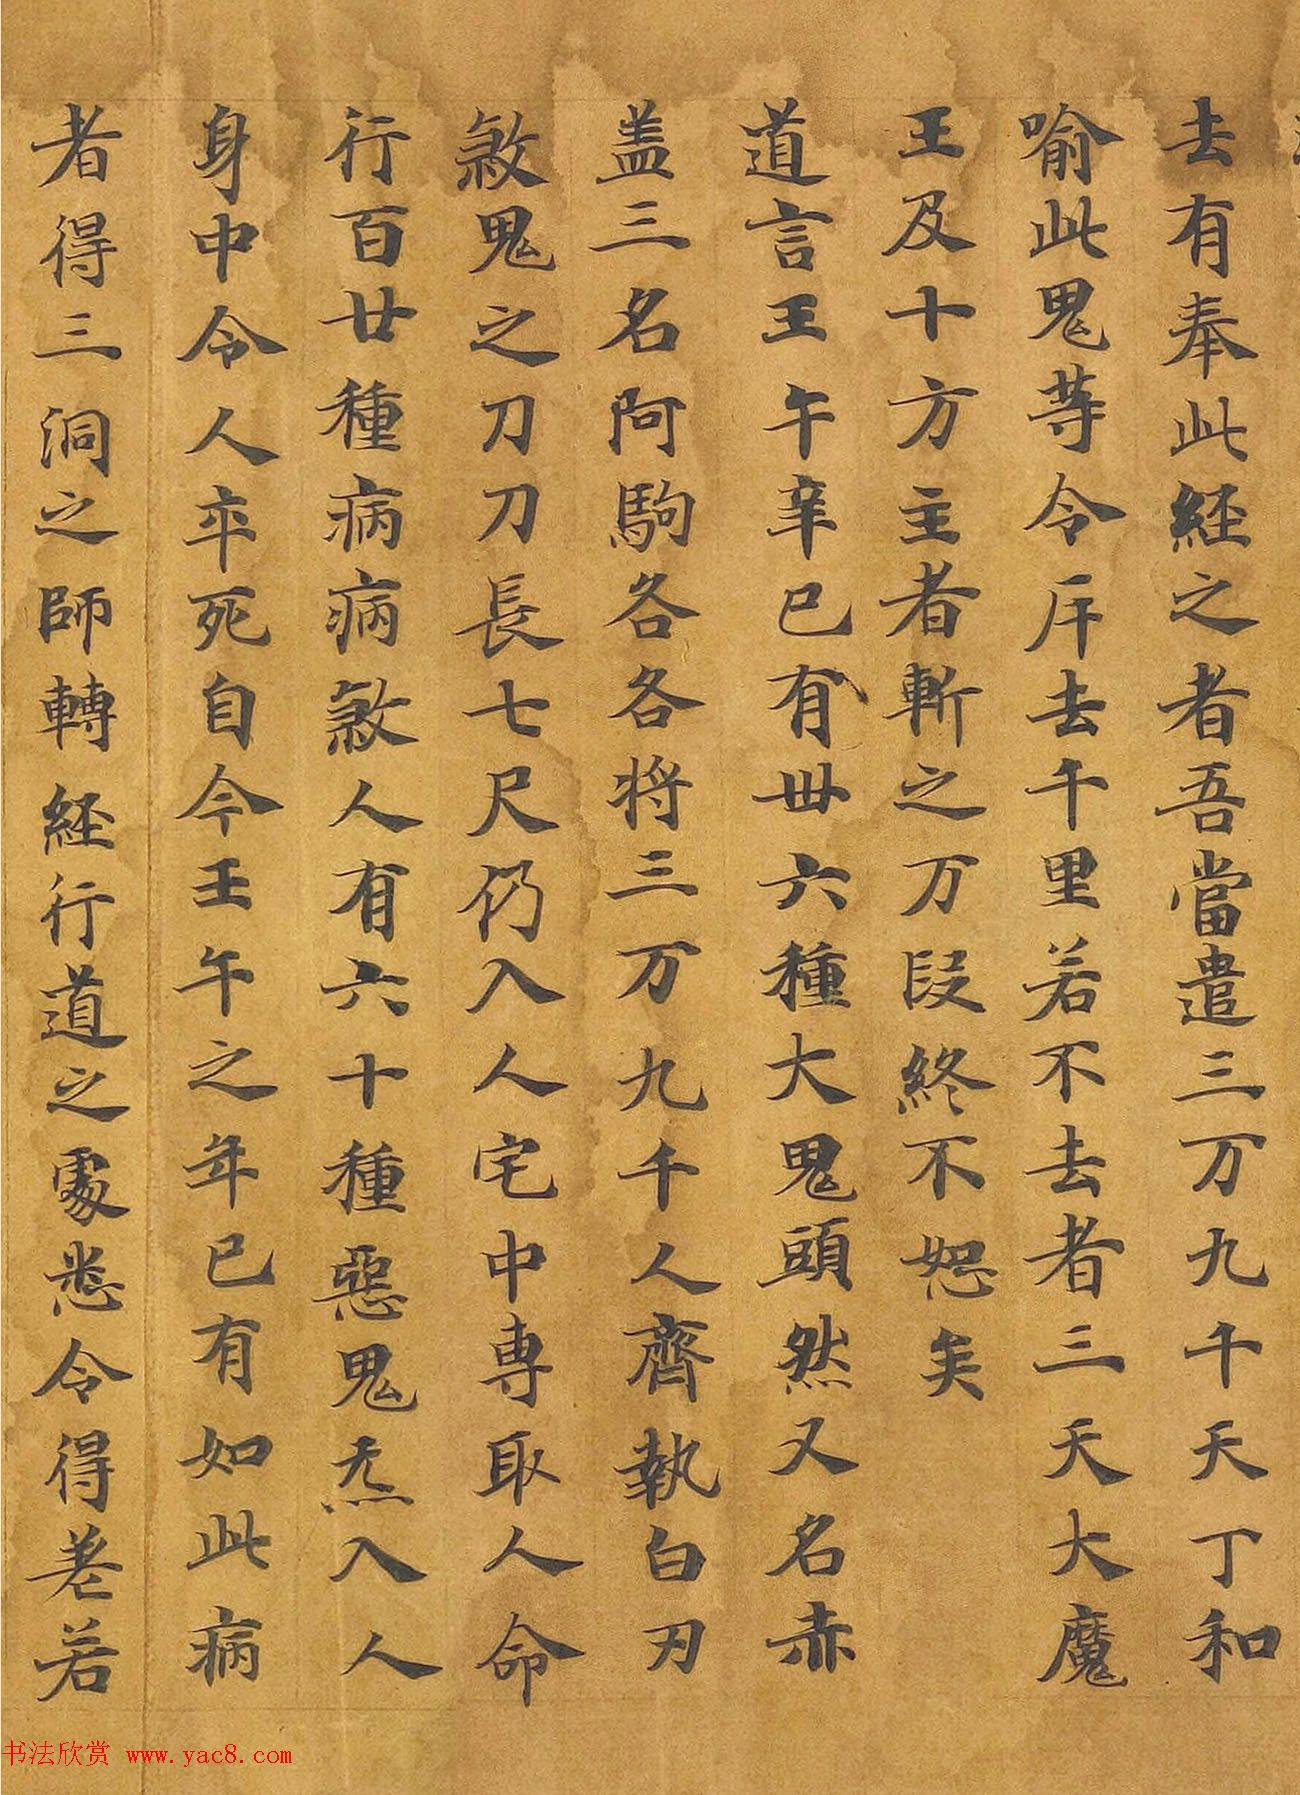 去有奉此経之者吾當遣三万九千天丁和
喻此鬼等令斥去千里若不去者三天大魔
王及十方主者斬之万段終不恕矣
道言王午辛巳有卌六種大鬼頭然又名赤
盖三名阿駒各各将三万九千人齊執白刃
煞鬼之刀刀長七尺仍入人宅中専取人命
行百廿種病病煞人有六十種惡鬼炁入人
身中令人卒死自今壬午之年已有如此病
者得三洞之師轉経行道之處悉令得差若
书法欣赏 www.yac8.com